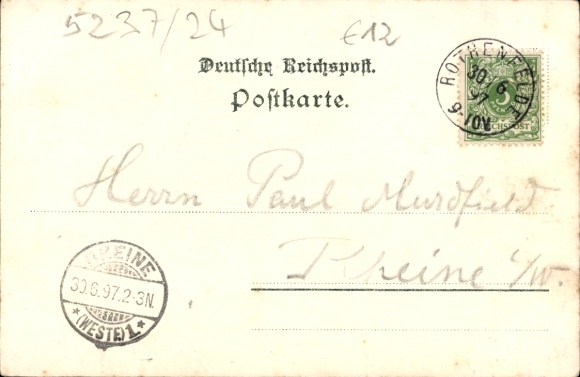 5237/24
€12
Deutsche Reichspost.
Postkarte.
ROTHENFELDE
30 6
97
9-10V
5
REICHSPOST
Herrn Paul Murdfield
Rheine i/W.
RHEINE
30.6.97.2-3N.
*(WESTF.)1.*